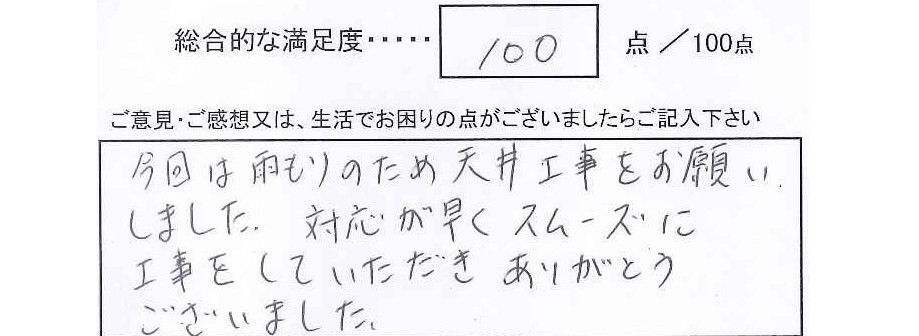 総合的な満足度‥‥‥ 100 点 ／100点
ご意見・ご感想又は、生活でお困りの点がございましたらご記入下さい
今回は雨もりのため天井工事をお願い
しました。対応が早くスムーズに
工事をしていただきありがとう
ございました。